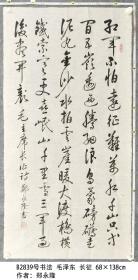 红军不怕远征难万水千山只
等闲五岭逶迤腾细浪乌蒙磅礴走
泥丸金沙水拍云崖暖大渡桥横
铁索寒更喜岷山千里雪三军过
后尽开颜 毛主席长征诗
B2839号书法 毛泽东 长征 68×138cm
作者：郑永隆